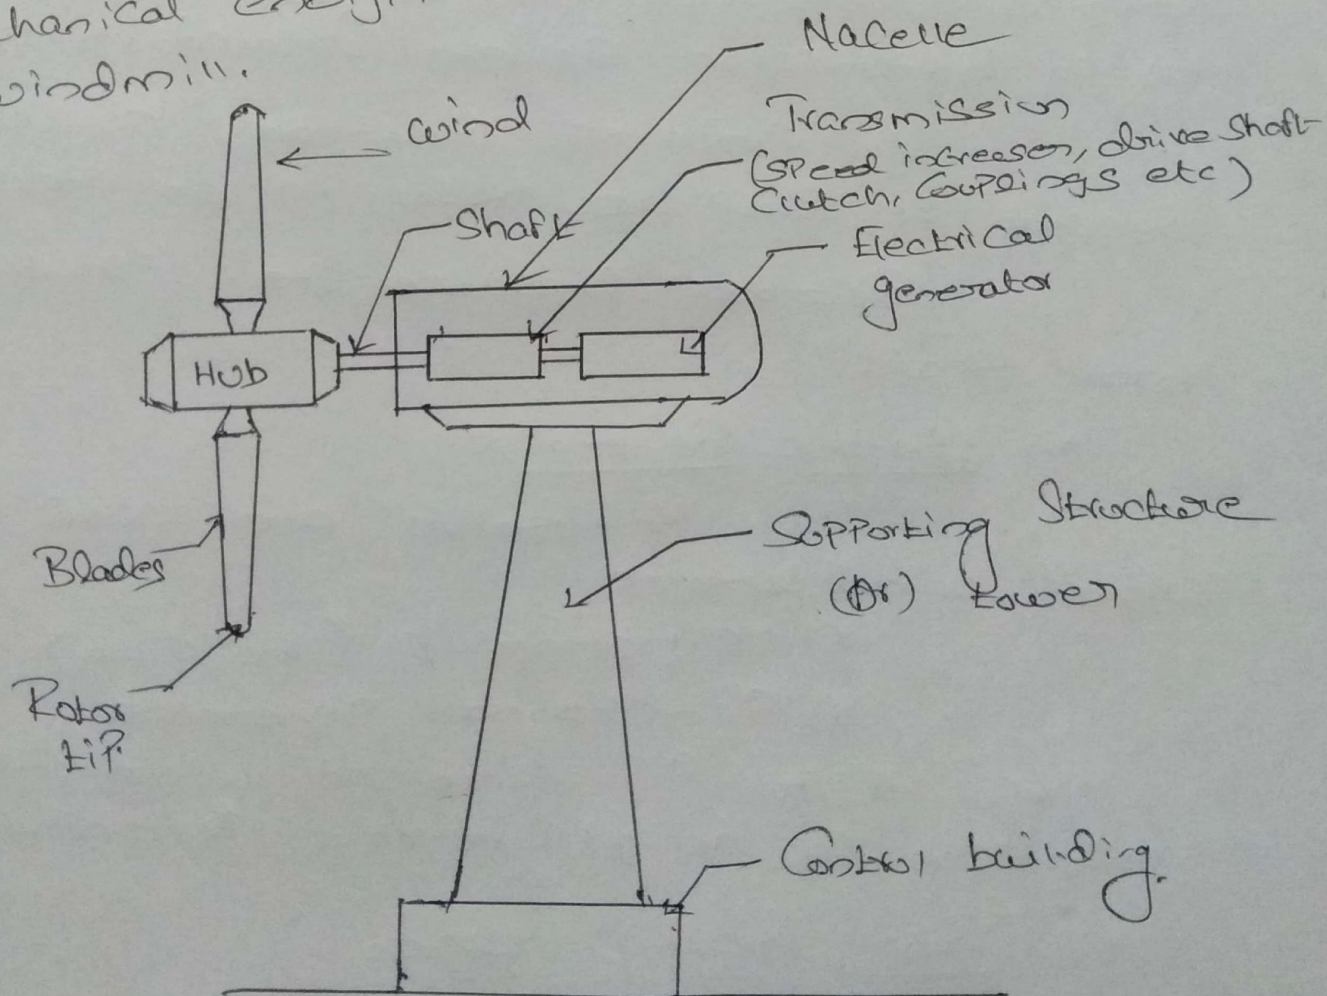 hanical
windmill.
Nacelle
wind
Transmission
(speed increaser, drive shaft
Clutch, Couplings etc)
Shaft
Electrical
generator
Hub
Blades
Supporting Structure
(Or) tower
Rotor
tip.
Control building.